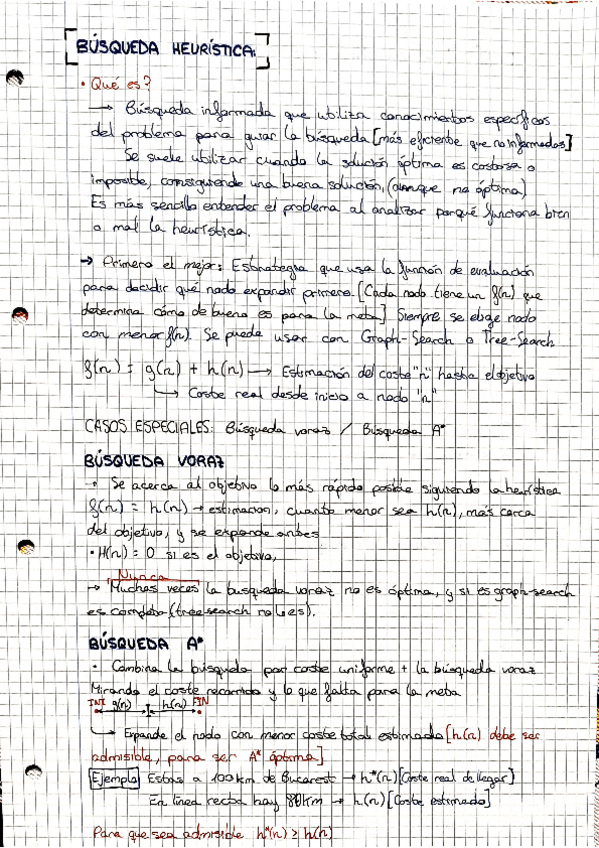 BÚSQUEDA HEURÍSTICA:
• Qué es?
→ Búsqueda informada que utiliza conocimientos específicos
del problema para guiar la búsqueda [más eficiente que no informadas]
Se suele utilizar cuando la solución óptima es costosa o
imposible, consiguiendo una buena solución, (aunque no óptima)
Es más sencillo entender el problema al analizar porqué funciona bien
o mal la heurística.
→ Primero el mejor: Estrategia que usa la función de evaluación
para decidir qué nodo expandir primero. [Cada nodo tiene un f(n) que
determina cómo de bueno es para la meta] Siempre se elige nodo
con menor f(n). Se puede usar con Graph-Search o Tree-Search
f(n) = g(n) + h(n) → Estimación del coste "n" hasta el objetivo
→ Coste real desde inicio a nodo "n"
CASOS ESPECIALES: Búsqueda voraz / Búsqueda A*
BÚSQUEDA VORAZ
• Se acerca al objetivo lo más rápido posible siguiendo la heurística
f(n) = h(n) → estimación, cuanto menor sea h(n), más cerca
del objetivo, y se expande antes
• H(n) = 0 si es el objetivo,
Nunca
→ Muchas veces la busqueda voraz no es óptima, y si es graph-search
es completo (tree search no lo es).
BÚSQUEDA A*
• Combina la búsqueda por coste uniforme + la búsqueda voraz
Mirando el coste recorrido y lo que falta para la meta
INI g(n) h(n) FIN
→ Expande el nodo con menor coste total estimado [h(n) debe ser
admisible, para ser A* óptima]
Ejemplo Estas a 100km de Bucarest → h*(n) [Coste real de llegar]
En línea recta hay 80km → h(n) [Coste estimado]
Para que sea admisible h*(n) ≥ h(n)